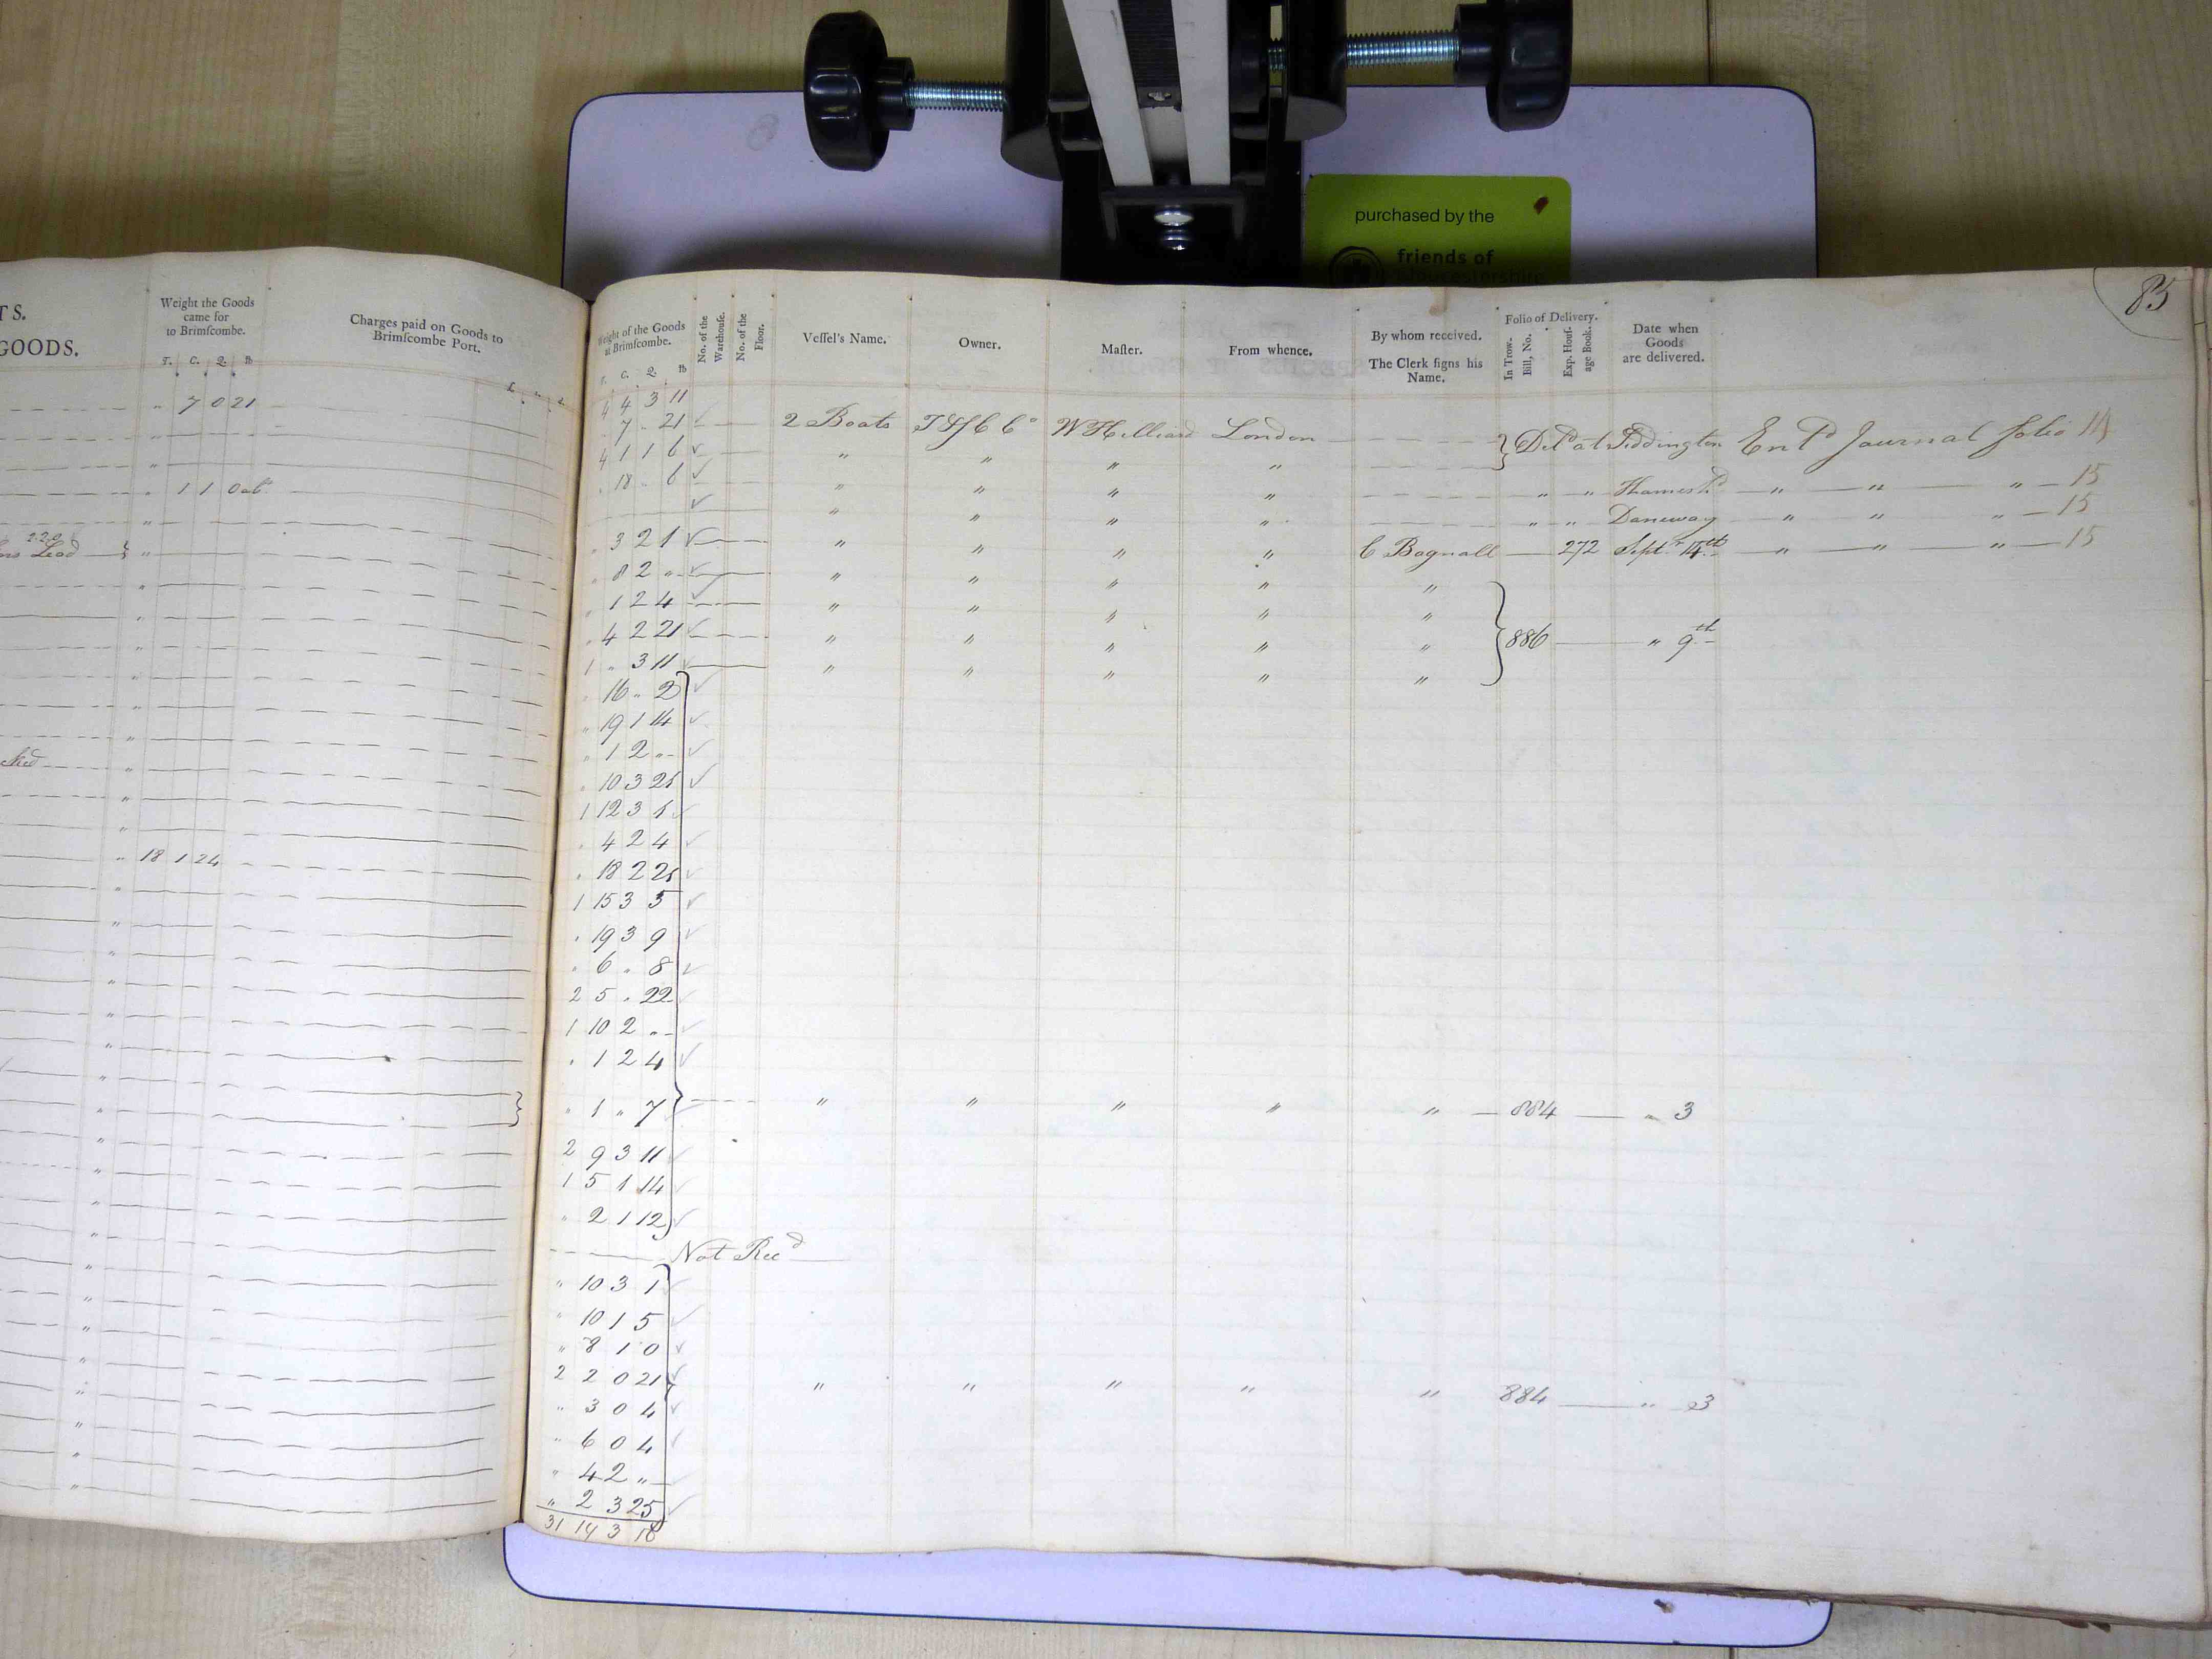 purchased by the
friends of
Gloucestershire
TS.
GOODS.
Weight the Goods
came for
to Brimſcombe.
T. C. Q. lb
Charges paid on Goods to
Brimſcombe Port.
" 7 0 21
" 1 1 0
Lead
" 18 1 24
85
Weight of the Goods
at Brimſcombe.
T. C. Q. lb
No. of the
Warehouſe.
No. of the
Floor.
Veſſel's Name.
Owner.
Maſter.
From whence.
By whom received.
The Clerk ſigns his
Name.
Folio of Delivery.
In Trow-
Bill, No.
Exp. Houſ-
age Book.
Date when
Goods
are delivered.
4 4 3 11
" 7 " 21 2 Boats W Hilliard London Deld at Siddington Entd Journal folio 14
4 1 1 6 " " " "
" 18 " 6 " " " " " " Thames Hd " " " 15
" " " " " " Daneway " " " 15
" 3 2 1 " " " " C Bagnall 272 Sept. 14th " " " 15
" 8 2 " " " " " "
" 1 2 4 " " " " "
" 4 2 21 " " " " " 886 " 9th
1 " 3 11 " " " " "
" 16 " 2
" 19 1 14
" 1 2 "
" 10 3 25
1 12 3 1
" 4 2 4
" 18 2 25
1 15 3 5
" 19 3 9
" 6 " 8
2 5 " 22
1 10 2 "
" 1 2 4
" 1 " 7 " " " " " 884 " 3
2 9 3 11
1 5 1 14
" 2 1 12
Not Recd
" 10 3 1
" 10 1 5
" 8 1 0
2 2 0 21 " " " " " 884 " 3
" 3 0 4
" 6 0 4
" 4 2 "
" 2 3 25
31 14 3 18